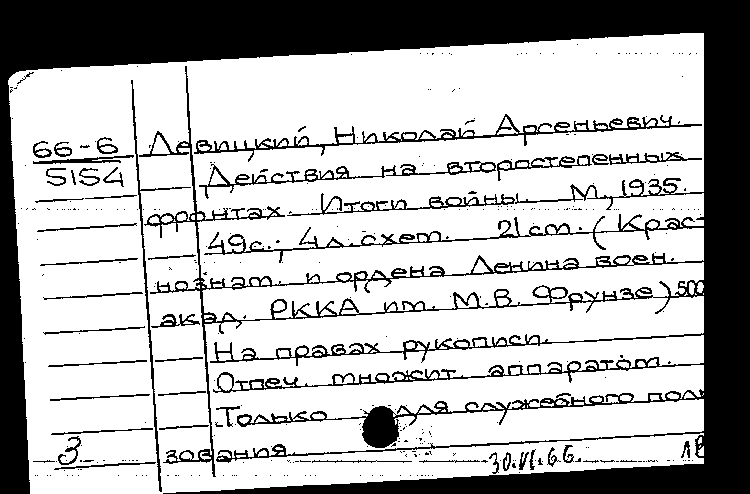 66-6 Левицкий, Николай Арсеньевич.
5154 Действия на второстепенных
фронтах. Итоги войны. М., 1935.
49с.; 4л. схем. 21 см. (Крас-
нознам. и ордена Ленина воен.
акад. РККА им. М.В. Фрунзе) 500
На правах рукописи.
Отпеч. множит. аппаратом.
Только для служебного поль
3 зования.
30.VI.66. ЛВ